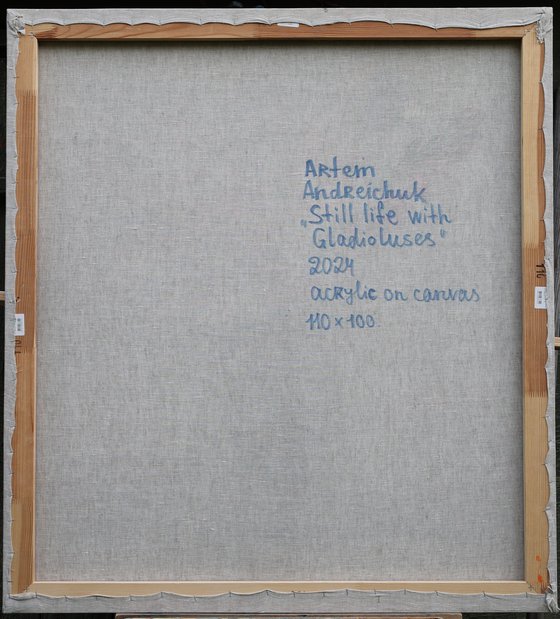 Artem
Andreichuk
„Still life with
Gladioluses"
2024
acrylic on canvas
110 x 100
110